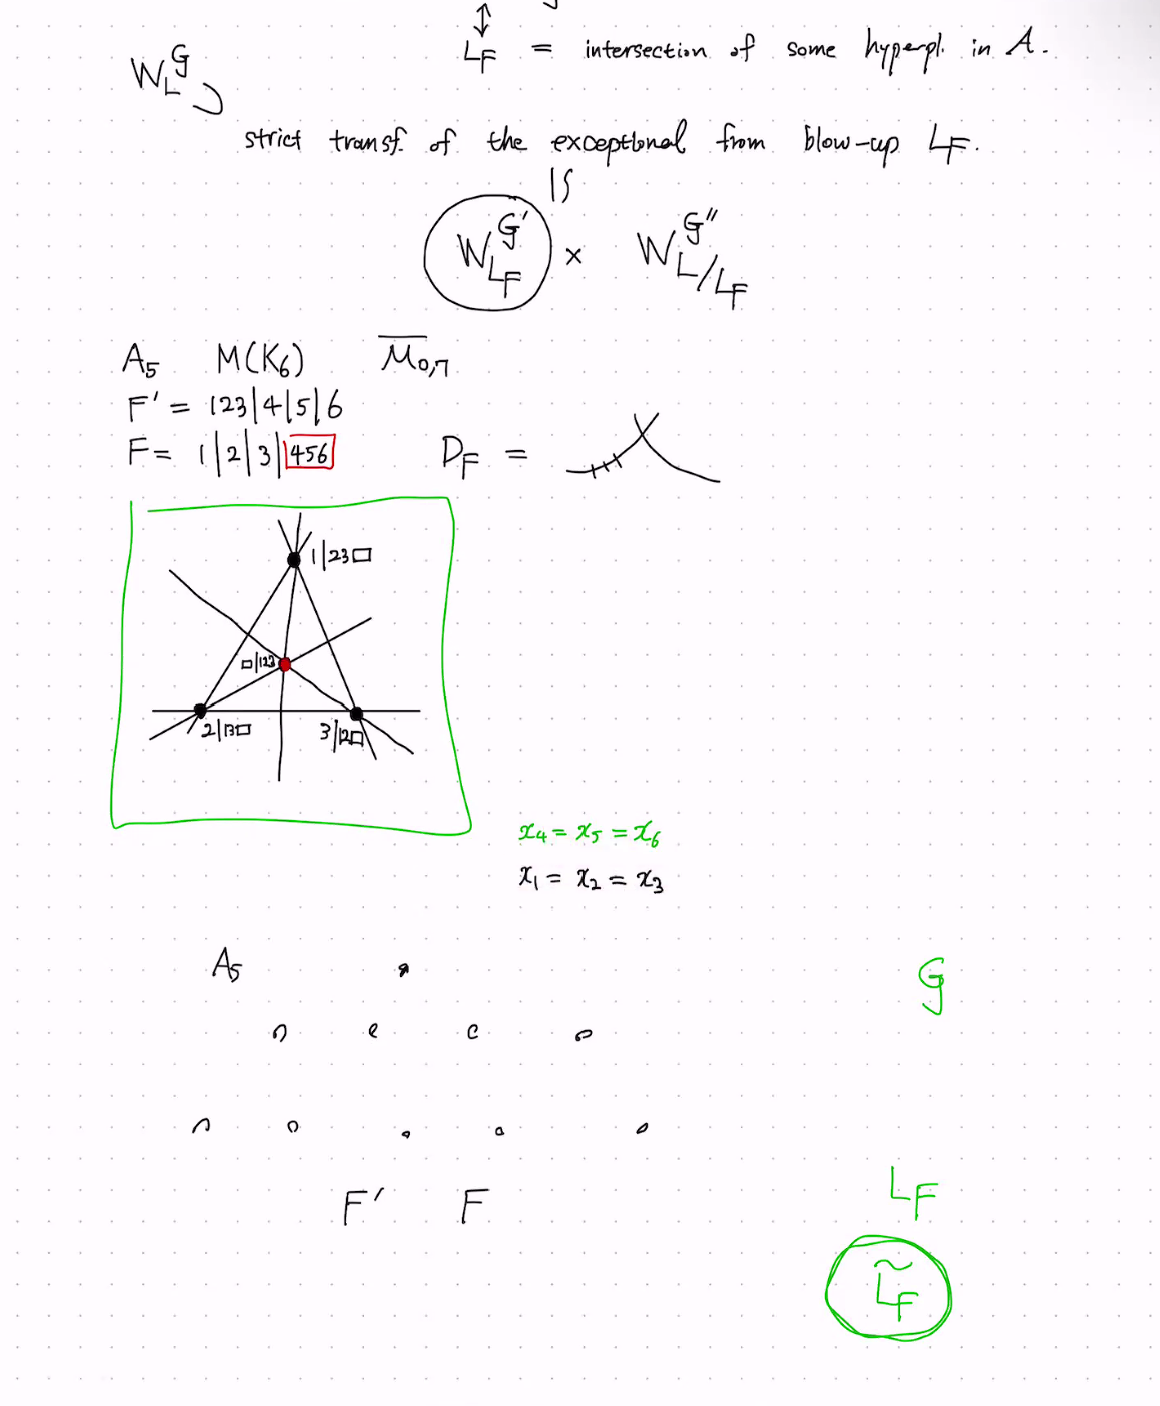 ↕
L_F = intersection of some hyperpl. in A.
W_L^G
strict transf. of the exceptional from blow-up L_F.
W_{L_F}^{G'} × W_{L/L_F}^{G''}
A_5 M(K_6) \overline{M}_{0,7}
F' = 123|4|5|6
F = 1|2|3|456 D_F =
1|23□
□|123
2|13□ 3|12□
x_4 = x_5 = x_6
x_1 = x_2 = x_3
A_5 G
L_F
F' F
\tilde{L}_F